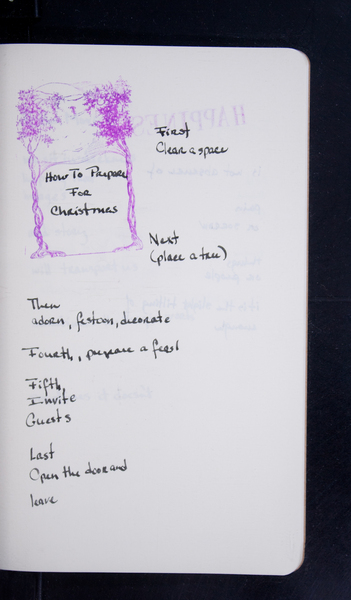 How To Prepare
For
Christmas
First
Clean a space
Next
(place a tree)
Then
adorn, festoon, decorate
Fourth, prepare a feast
Fifth,
Invite
Guests
Last
Open the door and
leave
HAPPINESS